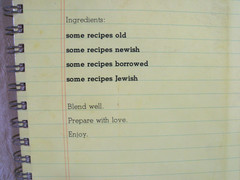 Ingredients:
some recipes old
some recipes newish
some recipes borrowed
some recipes Jewish
Blend well.
Prepare with love.
Enjoy.